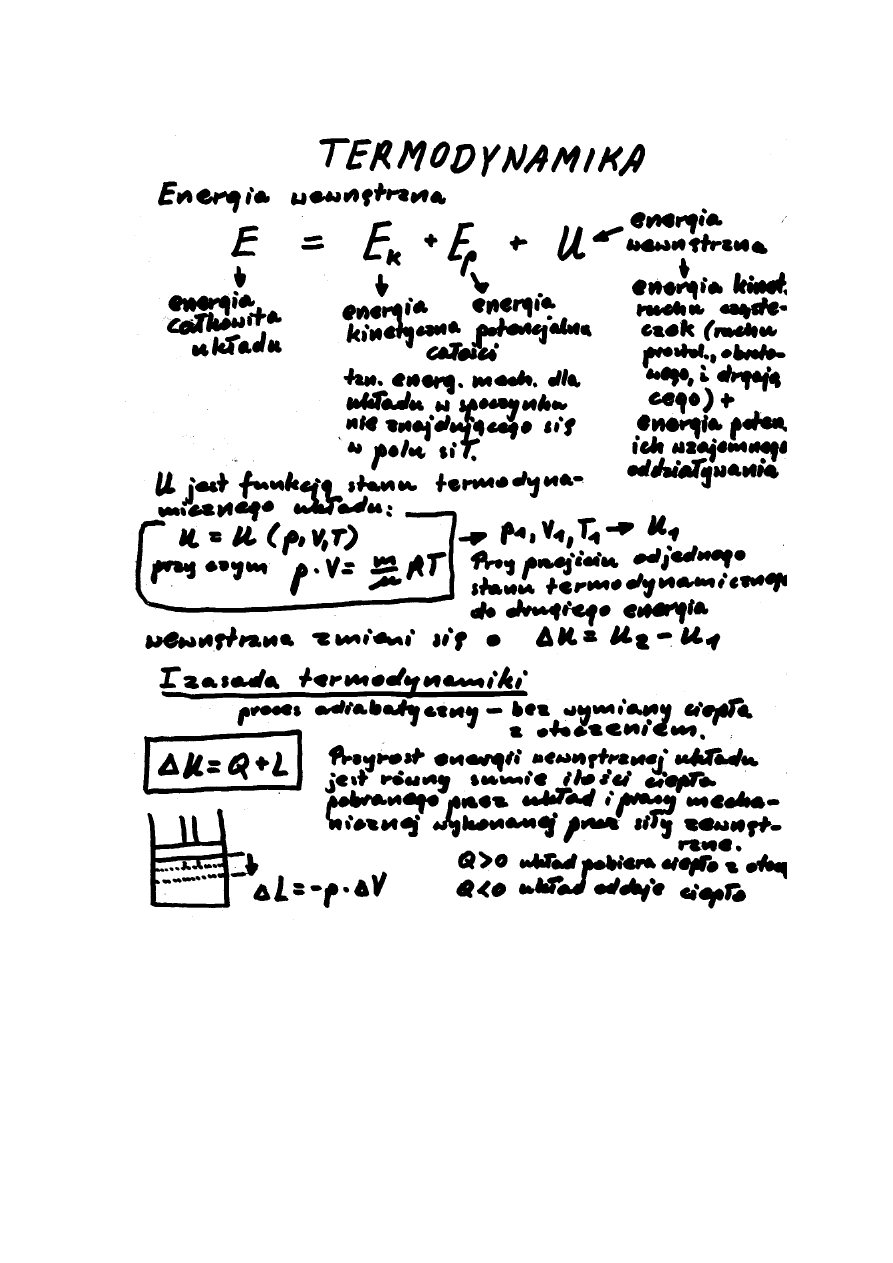 TERMODYNAMIKA
Energia wewnętrzna
E = Ek + Ep + U
energia
wewnętrzna
energia
całkowita
układu
energia
kinetyczna
energia
potencjalna
całości
tzn. energ. mech. dla
układu w spoczynku
nie znajdującego się
w polu sił.
energia kinet.
ruchu cząste-
czek (ruchu
postęp., obroto-
wego, i drgają
cego) +
energia poten
ich wzajemnego
oddziaływania
U jest funkcją stanu termodyna-
micznego układu:
U = U (p, V, T)
przy czym p · V = m/μ RT
→ p1, V1, T1 → U1
Przy przejściu od jednego
stanu termodynamicznego
do drugiego energia
wewnętrzna zmieni się o ΔU = U2 - U1
I zasada termodynamiki
proces adiabatyczny – bez wymiany ciepła
z otoczeniem.
ΔU = Q + L
Przyrost energii wewnętrznej układu
jest równy sumie ilości ciepła
pobranego przez układ i pracy mecha-
nicznej wykonanej przez siły zewnęt-
rzne.
Q > 0 układ pobiera ciepło z otocz
Q < 0 układ oddaje ciepło
ΔL = -p · ΔV